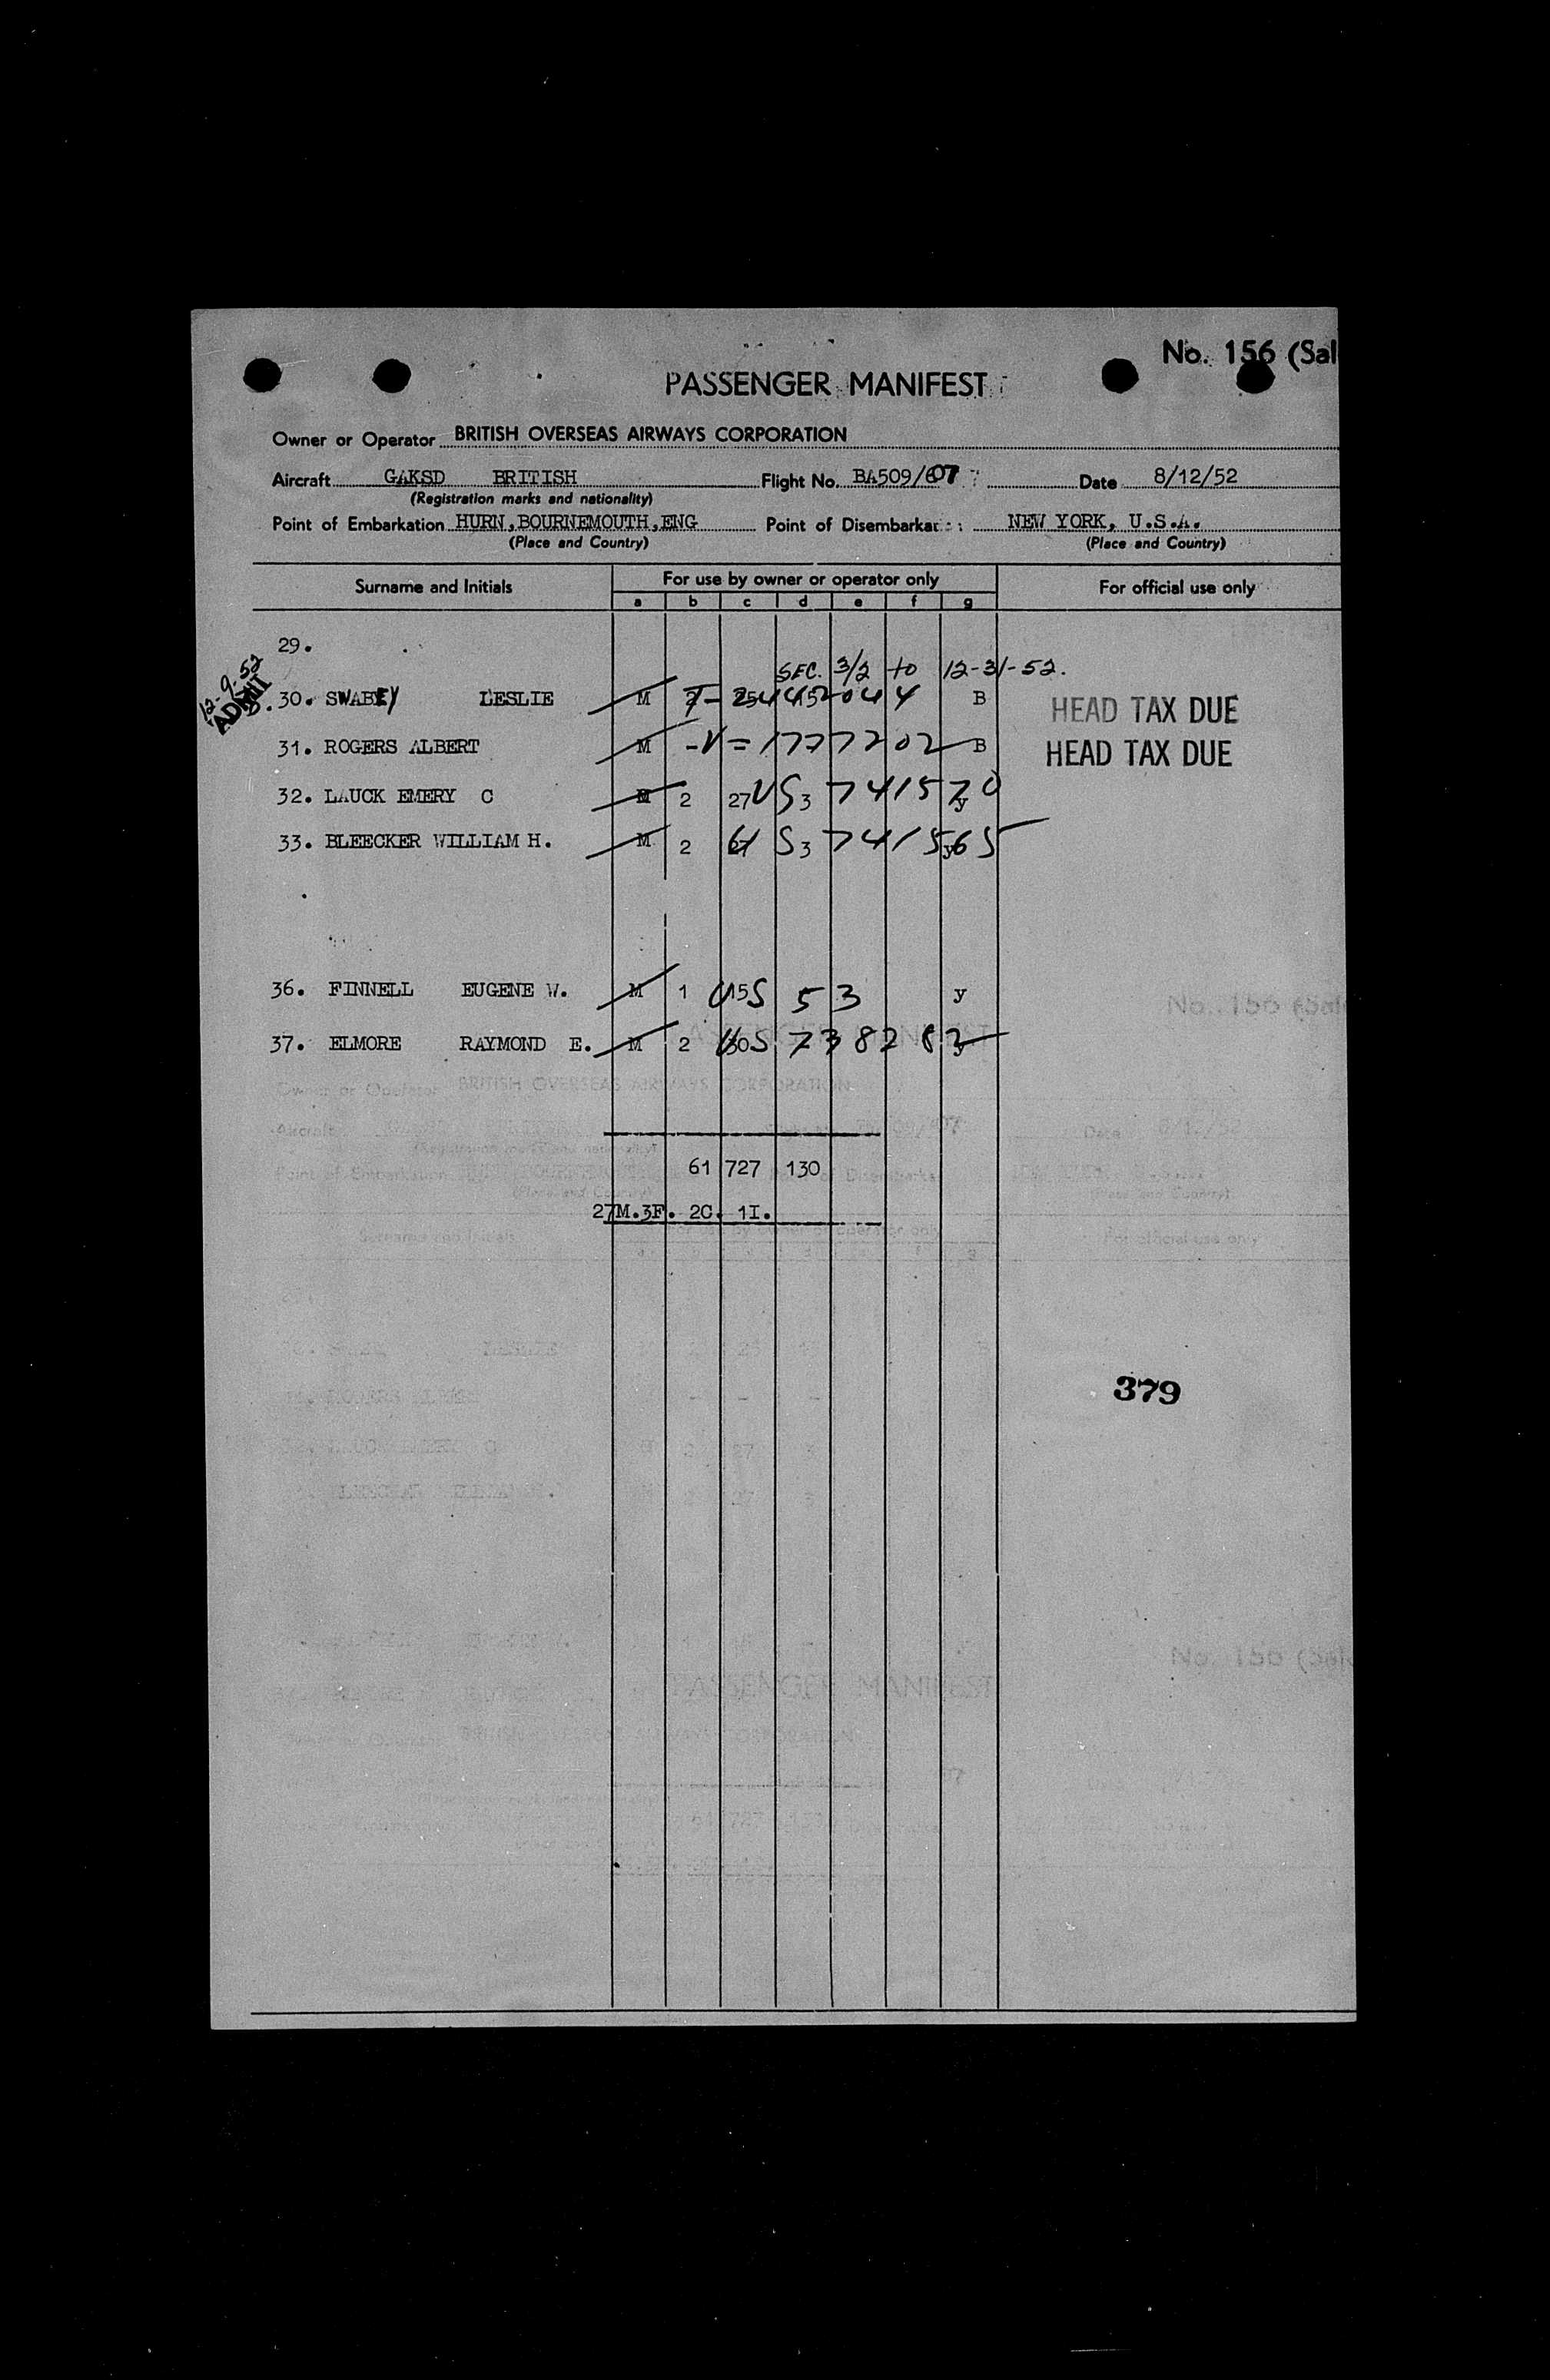 No. 156 (Sal
PASSENGER MANIFEST
Owner or Operator BRITISH OVERSEAS AIRWAYS CORPORATION
Aircraft GAKSD BRITISH Flight No. BA509/607 Date 8/12/52
(Registration marks and nationality)
Point of Embarkation HURN,BOURNEMOUTH,ENG Point of Disembarkat NEW YORK, U.S.A.
(Place and Country) (Place and Country)
Surname and Initials For use by owner or operator only For official use only
a b c d e f g
29.
12-9-52 SEC. 3/2 to 12-31-52.
ADMIT
30. SWABEY LESLIE M B HEAD TAX DUE
31. ROGERS ALBERT M -V=1777202 B HEAD TAX DUE
32. LAUCK EMERY C M 2 27 US 3 741570 y
33. BLEECKER WILLIAM H. M 2 US 3 741565 y
36. FINNELL EUGENE W. M 1 15 US 53 y
37. ELMORE RAYMOND E. M 2 30 US 738283
61 727 130
27M.3F. 2C. 1I.
379